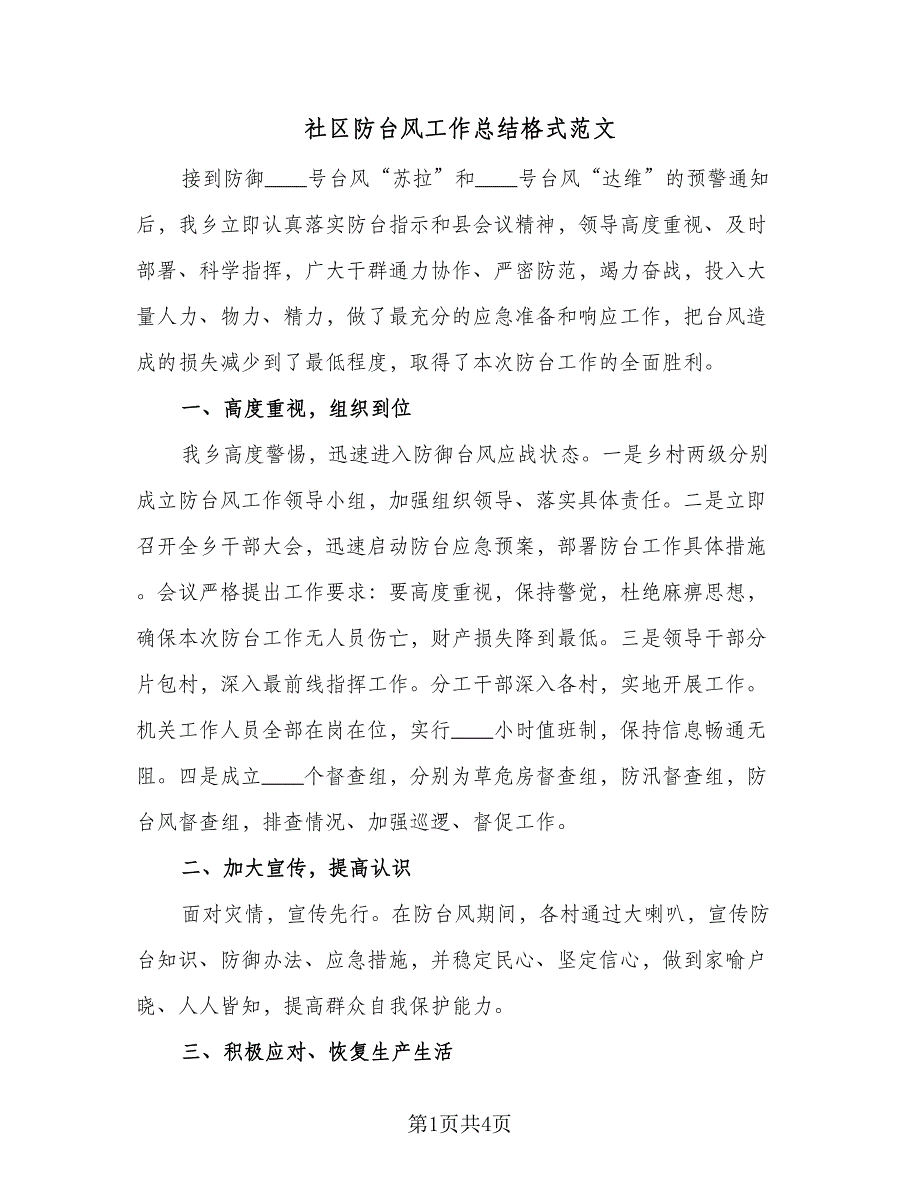 社区防台风工作总结格式范文
接到防御____号台风“苏拉”和____号台风“达维”的预警通知
后，我乡立即认真落实防台指示和县会议精神，领导高度重视、及时
部署、科学指挥，广大干群通力协作、严密防范，竭力奋战，投入大
量人力、物力、精力，做了最充分的应急准备和响应工作，把台风造
成的损失减少到了最低程度，取得了本次防台工作的全面胜利。
一、高度重视，组织到位
我乡高度警惕，迅速进入防御台风应战状态。一是乡村两级分别
成立防台风工作领导小组，加强组织领导、落实具体责任。二是立即
召开全乡干部大会，迅速启动防台应急预案，部署防台工作具体措施
。会议严格提出工作要求：要高度重视，保持警觉，杜绝麻痹思想，
确保本次防台工作无人员伤亡，财产损失降到最低。三是领导干部分
片包村，深入最前线指挥工作。分工干部深入各村，实地开展工作。
机关工作人员全部在岗在位，实行____小时值班制，保持信息畅通无
阻。四是成立____个督查组，分别为草危房督查组，防汛督查组，防
台风督查组，排查情况、加强巡逻、督促工作。
二、加大宣传，提高认识
面对灾情，宣传先行。在防台风期间，各村通过大喇叭，宣传防
台知识、防御办法、应急措施，并稳定民心、坚定信心，做到家喻户
晓、人人皆知，提高群众自我保护能力。
三、积极应对、恢复生产生活
第1页共4页